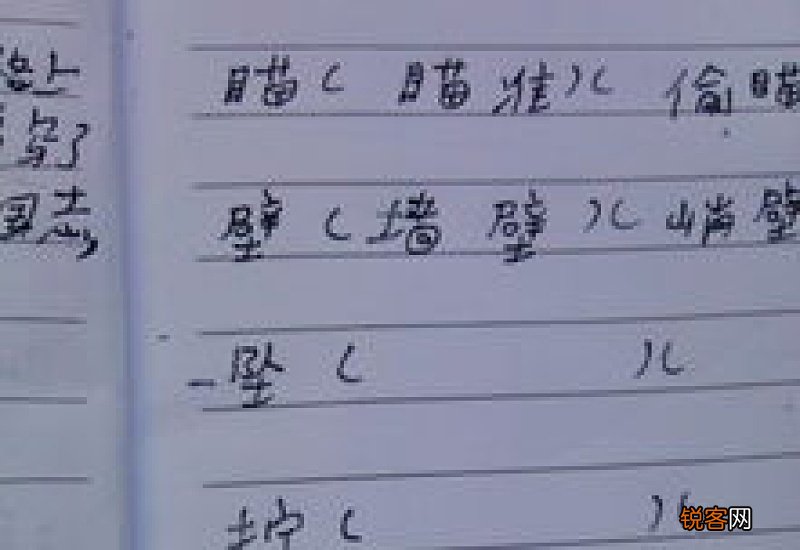 瞄（ 瞄准 ）（ 偷瞄
壁（ 墙壁 ）（ 峭壁
坠（ ）（
拧（ ）（
锐客网